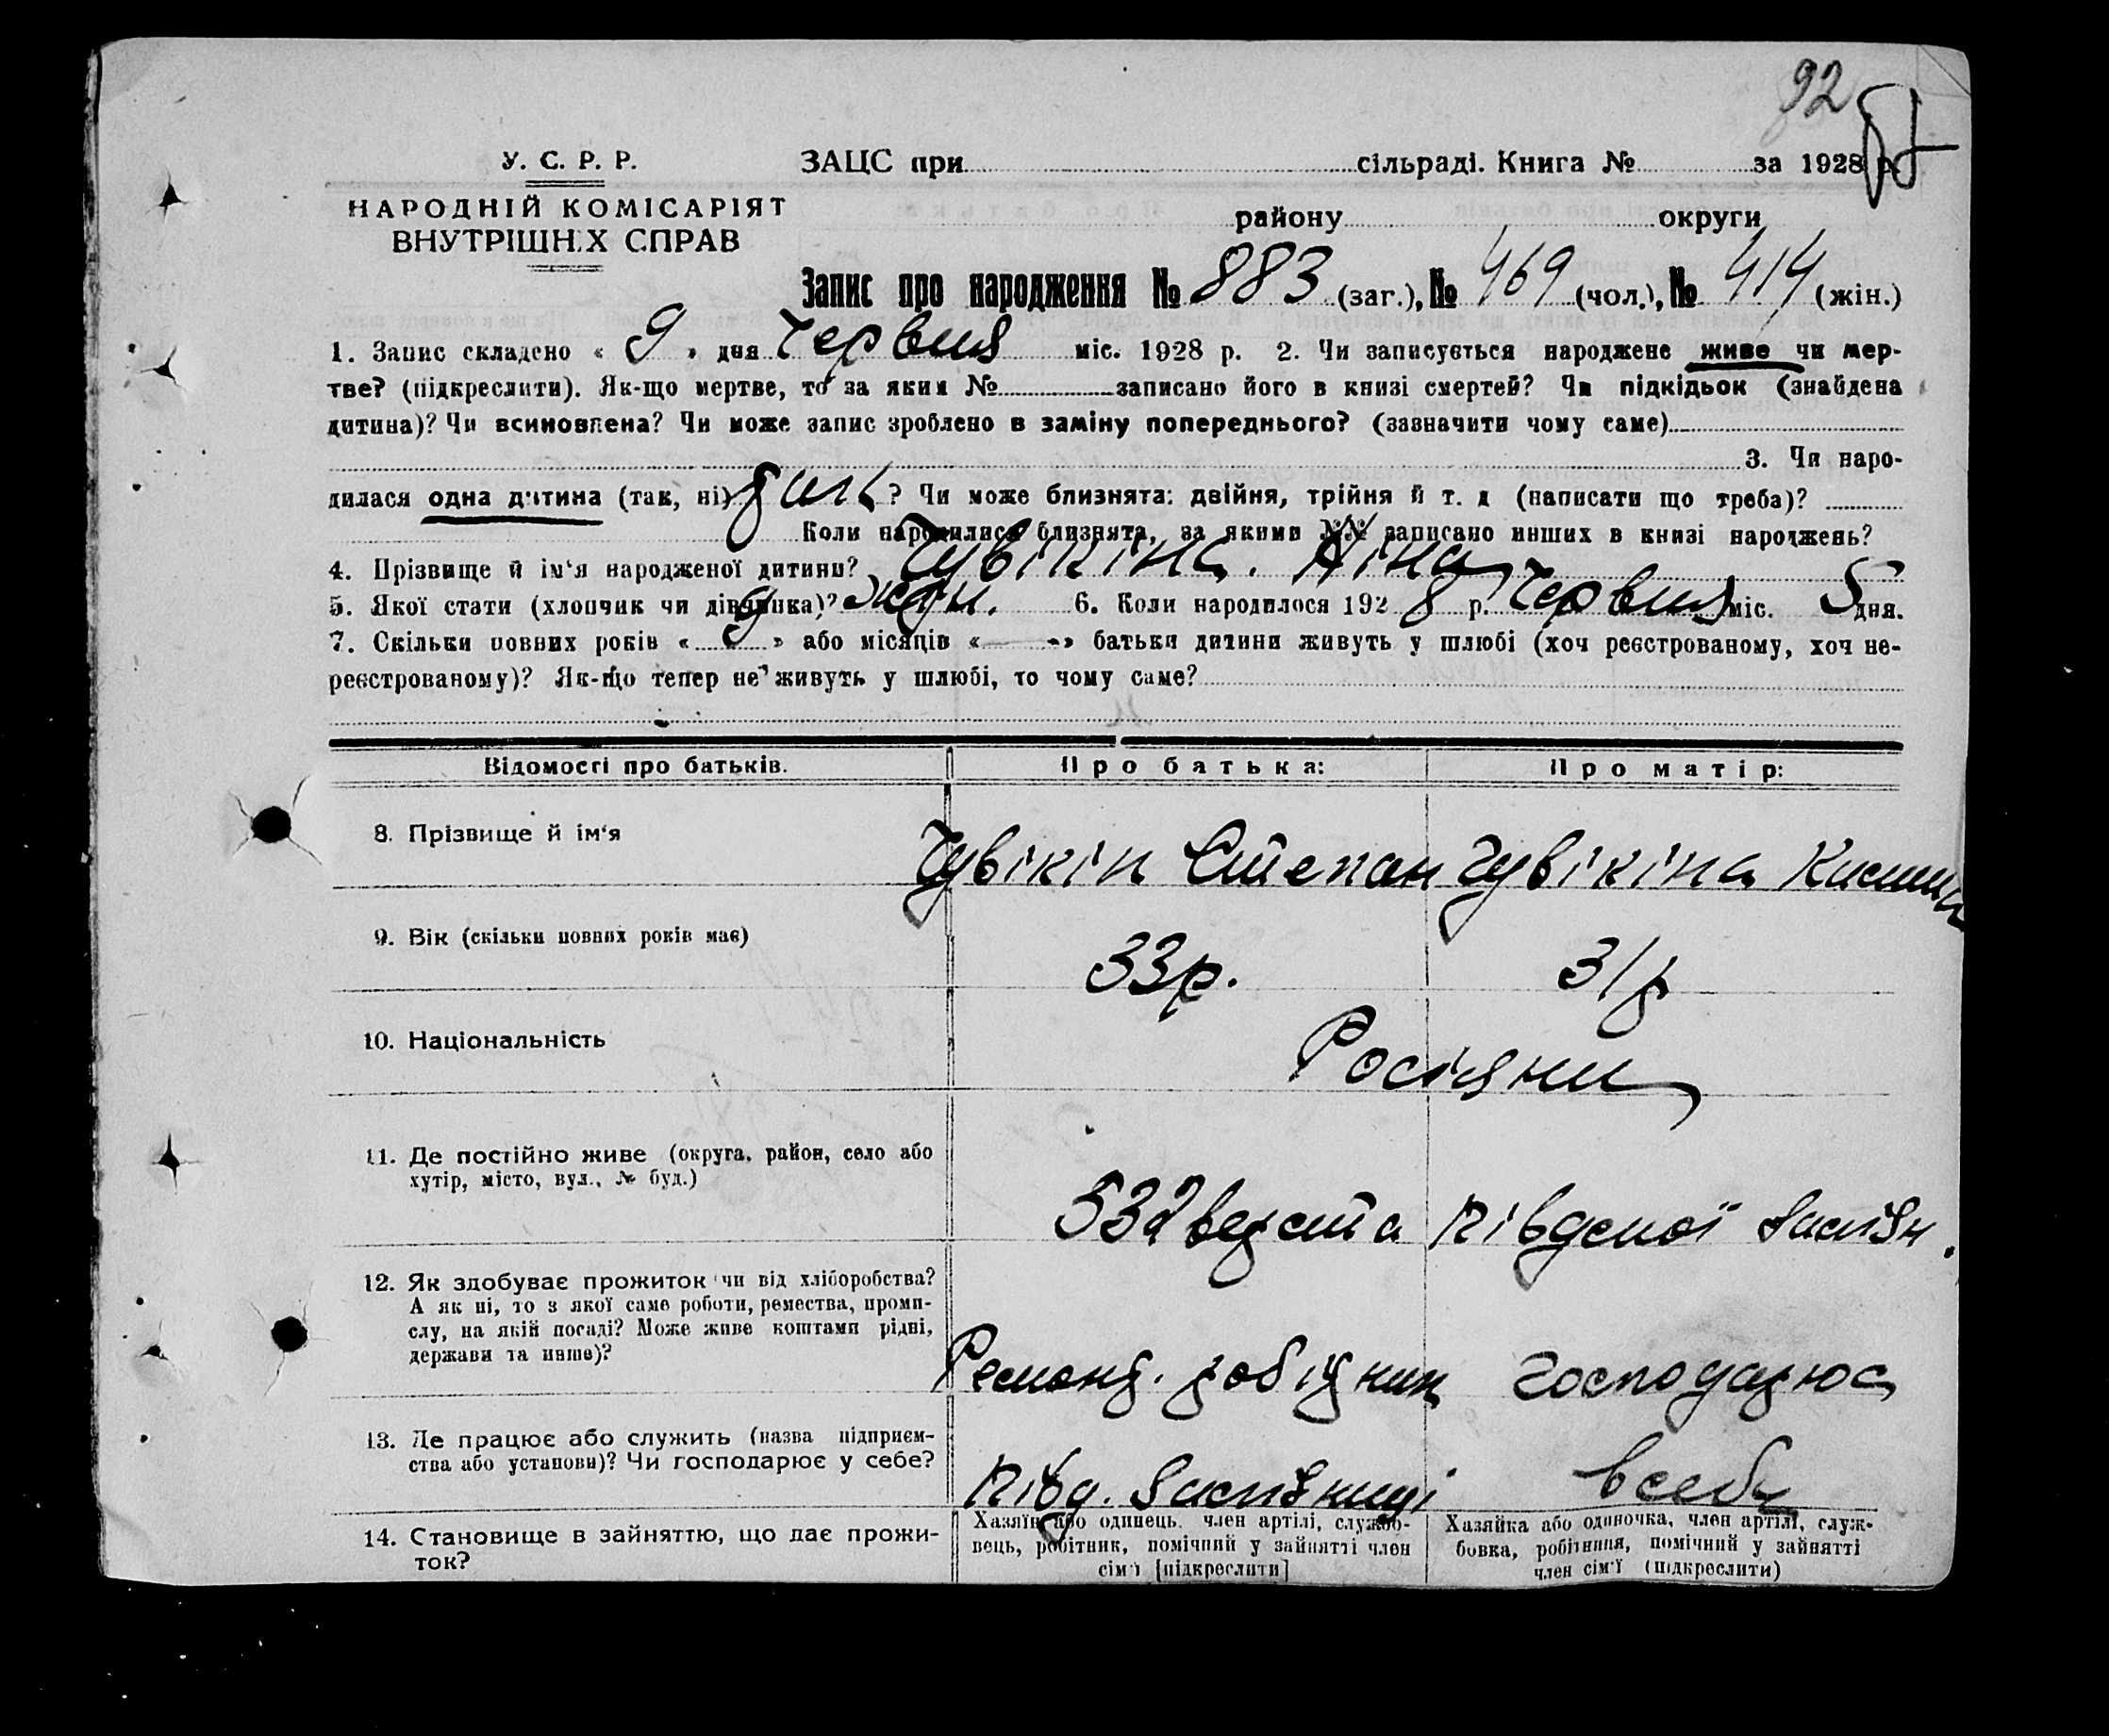 92
У. С. Р. Р.
ЗАЦС при сільраді. Книга № за 1928 р.
НАРОДНІЙ КОМІСАРІЯТ
ВНУТРІШНІХ СПРАВ
району округи
Запис про народження № 883 (заг.), № 469 (чол.), № 414 (жін.)
1. Запис складено « 9 » дня Червня міс. 1928 р. 2. Чи записується народжене живе чи мер-
тве? (підкреслити). Як-що мертве, то за яким № записано його в книзі смертей? Чи підкідьок (знайдена
дитина)? Чи всиновлена? Чи може запис зроблено в заміну попереднього? (зазначити чому саме)
3. Чи наро-
дилася одна дитина (так, ні) ? Чи може близнята: двійня, трійня й т. д (написати що треба)?
Коли народилися близнята, за якими №№ записано инших в книзі народжень?
4. Прізвище й ім'я народженої дитини? Чувікіна. Ніна
5. Якої стати (хлопчик чи дівчинка)? жін. 6. Коли народилося 1928 р. Червня міс. 5 дня.
7. Скільки повних років « 9 » або місяців « — » батьки дитини живуть у шлюбі (хоч реєстрованому, хоч не-
реєстрованому)? Як-що тепер не живуть у шлюбі, то чому саме?
Відомості про батьків. Про батька: Про матір:
8. Прізвище й ім'я Чувікін Степан Чувікіна
9. Вік (скільки повних років має) 33р. 31р
10. Національність Росіяни
11. Де постійно живе (округа, район, село або
хутір, місто, вул., № буд.)
532 верста Південої
12. Як здобуває прожиток чи від хліборобства?
А як ні, то з якої саме роботи, ремества, проми-
слу, на якій посаді? Може живе коштами рідні,
держави та инше)?
Ремонт. робітник господарює
13. Де працює або служить (назва підприєм-
ства або установи)? Чи господарює у себе?
Півд. Залізниці всебе
14. Становище в зайняттю, що дає прожи-
ток?
Хазяїн або одинець, член артілі, службо-
вець, робітник, помічний у зайнятті член
сім'ї [підкреслити]
Хазяйка або одиночка, член артілі, служ-
бовка, робітниця, помічний у зайнятті
член сім'ї (підкреслити)